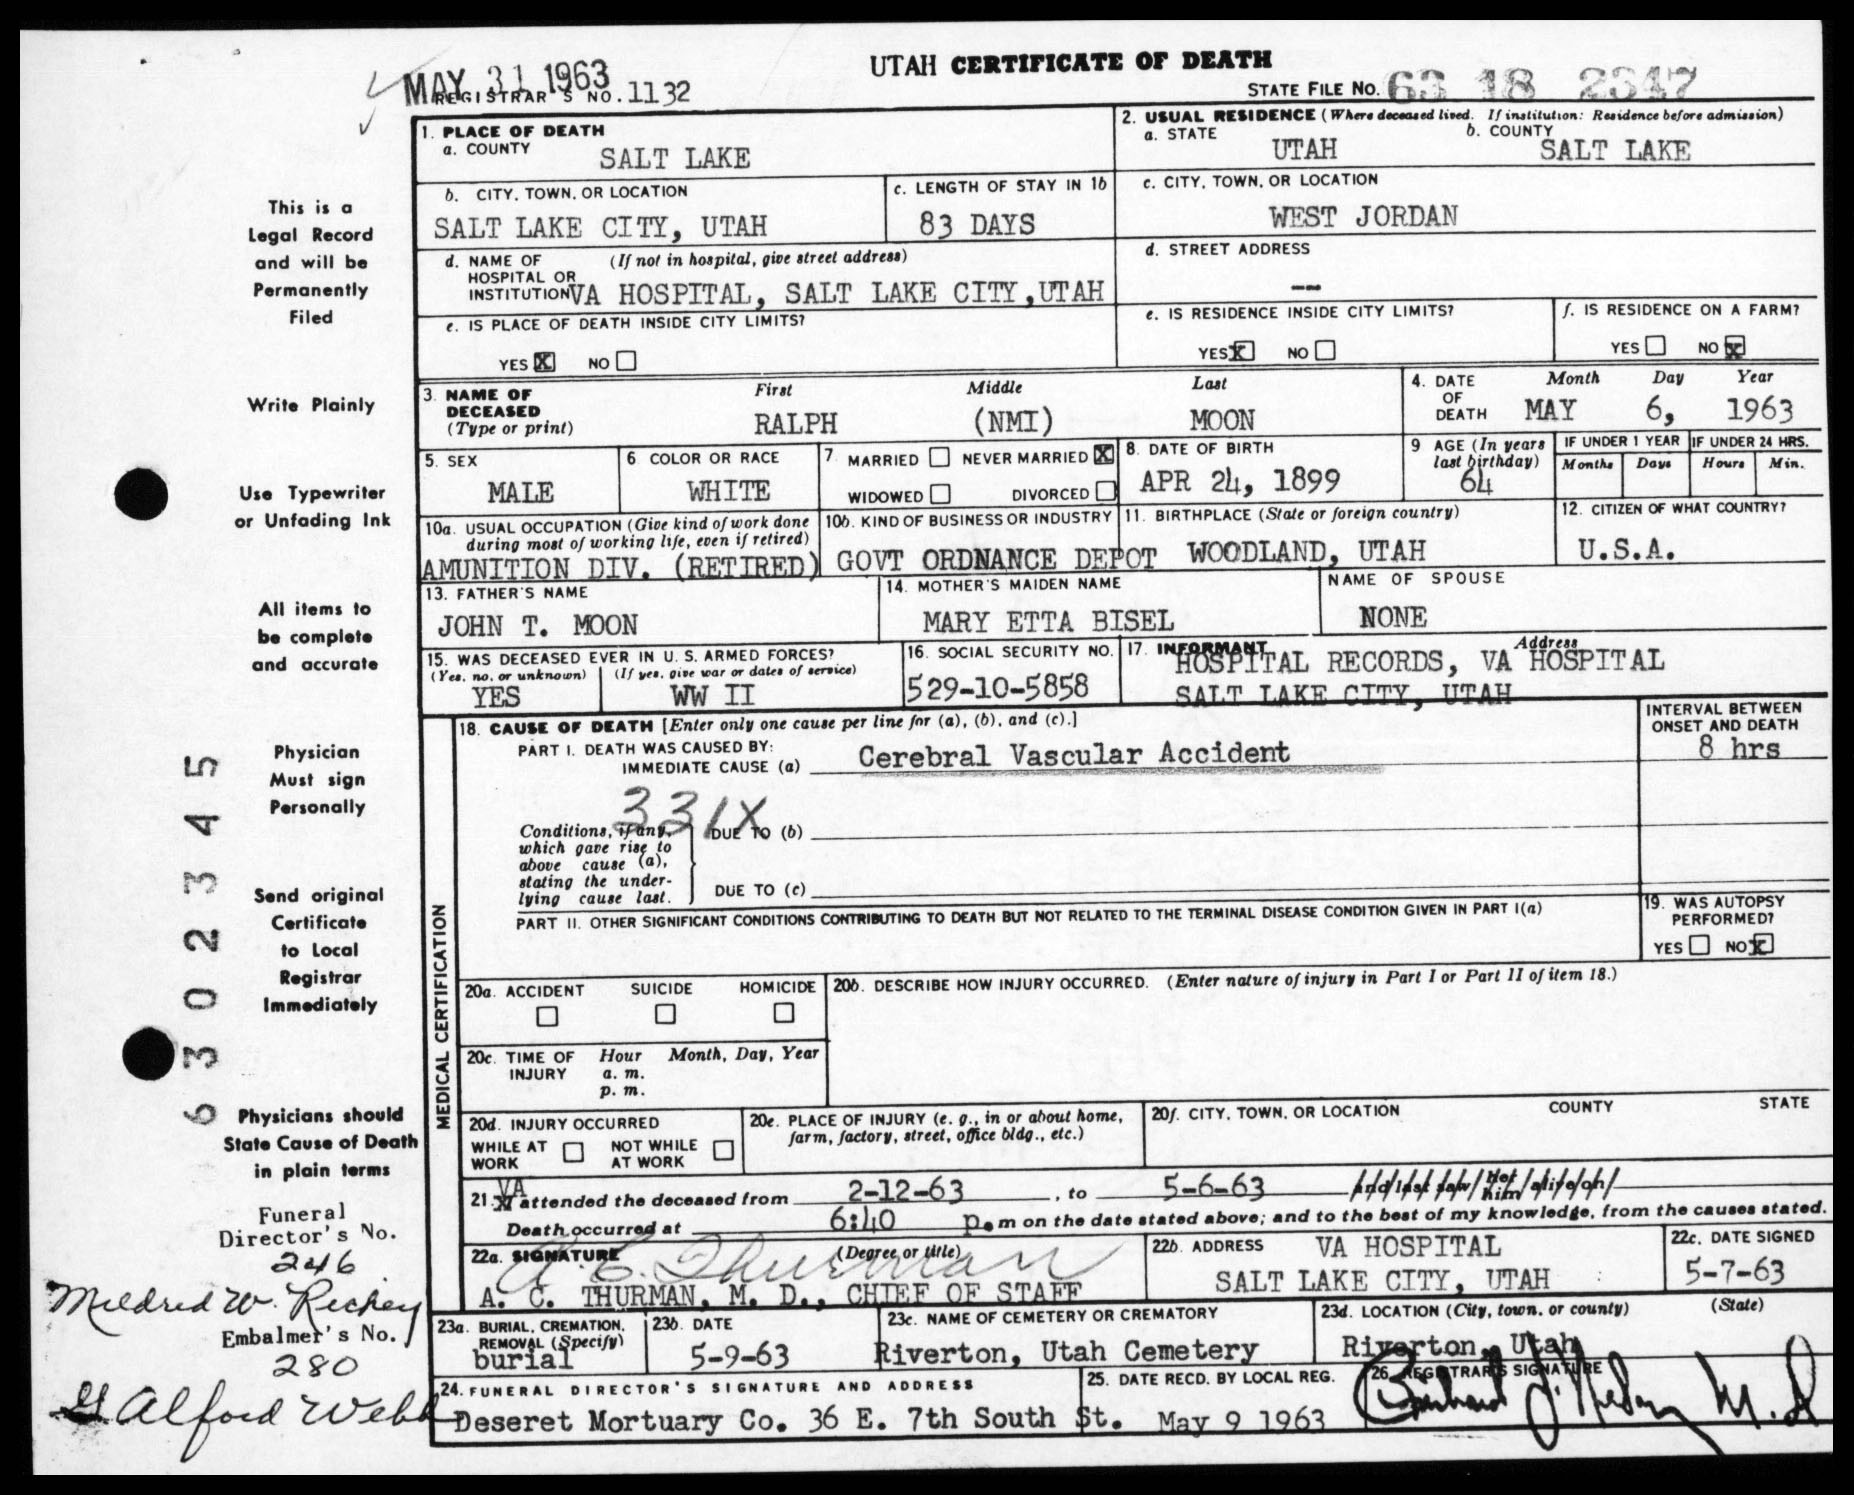 MAY 31 1963
UTAH CERTIFICATE OF DEATH
REGISTRAR'S NO. 1132
STATE FILE NO. 63 18 2347
This is a
Legal Record
and will be
Permanently
Filed
Write Plainly
Use Typewriter
or Unfading Ink
All items to
be complete
and accurate
Physician
Must sign
Personally
Send original
Certificate
to Local
Registrar
Immediately
Physicians should
State Cause of Death
in plain terms
Funeral
Director's No.
246
Mildred W. Richey
Embalmer's No.
280
G. Alford Webb
6302345
1. PLACE OF DEATH
a. COUNTY
SALT LAKE
2. USUAL RESIDENCE (Where deceased lived. If institution: Residence before admission)
a. STATE
UTAH
b. COUNTY
SALT LAKE
b. CITY, TOWN, OR LOCATION
SALT LAKE CITY, UTAH
c. LENGTH OF STAY IN 1b
83 DAYS
c. CITY, TOWN, OR LOCATION
WEST JORDAN
d. NAME OF (If not in hospital, give street address)
HOSPITAL OR
INSTITUTION VA HOSPITAL, SALT LAKE CITY, UTAH
d. STREET ADDRESS
--
e. IS PLACE OF DEATH INSIDE CITY LIMITS?
YES X NO
e. IS RESIDENCE INSIDE CITY LIMITS?
YES X NO
f. IS RESIDENCE ON A FARM?
YES NO X
3. NAME OF
DECEASED
(Type or print)
First Middle Last
RALPH (NMI) MOON
4. DATE
OF
DEATH
Month Day Year
MAY 6, 1963
5. SEX
MALE
6. COLOR OR RACE
WHITE
7. MARRIED NEVER MARRIED X
WIDOWED DIVORCED
8. DATE OF BIRTH
APR 24, 1899
9 AGE (In years
last birthday)
64
IF UNDER 1 YEAR
Months Days
IF UNDER 24 HRS.
Hours Min.
10a. USUAL OCCUPATION (Give kind of work done
during most of working life, even if retired)
AMUNITION DIV. (RETIRED)
10b. KIND OF BUSINESS OR INDUSTRY
GOVT ORDNANCE DEPOT
11. BIRTHPLACE (State or foreign country)
WOODLAND, UTAH
12. CITIZEN OF WHAT COUNTRY?
U.S.A.
13. FATHER'S NAME
JOHN T. MOON
14. MOTHER'S MAIDEN NAME
MARY ETTA BISEL
NAME OF SPOUSE
NONE
15. WAS DECEASED EVER IN U. S. ARMED FORCES?
(Yes, no, or unknown) (If yes, give war or dates of service)
YES WW II
16. SOCIAL SECURITY NO.
529-10-5858
17. INFORMANT Address
HOSPITAL RECORDS, VA HOSPITAL
SALT LAKE CITY, UTAH
MEDICAL CERTIFICATION
18. CAUSE OF DEATH [Enter only one cause per line for (a), (b), and (c).]
PART I. DEATH WAS CAUSED BY:
IMMEDIATE CAUSE (a) Cerebral Vascular Accident
INTERVAL BETWEEN
ONSET AND DEATH
8 hrs
331X
Conditions, if any,
which gave rise to
above cause (a),
stating the under-
lying cause last.
DUE TO (b)
DUE TO (c)
PART II. OTHER SIGNIFICANT CONDITIONS CONTRIBUTING TO DEATH BUT NOT RELATED TO THE TERMINAL DISEASE CONDITION GIVEN IN PART I(a)
19. WAS AUTOPSY
PERFORMED?
YES NO X
20a. ACCIDENT SUICIDE HOMICIDE
20b. DESCRIBE HOW INJURY OCCURRED. (Enter nature of injury in Part I or Part II of item 18.)
20c. TIME OF
INJURY
Hour Month, Day, Year
a. m.
p. m.
20d. INJURY OCCURRED
WHILE AT
WORK
NOT WHILE
AT WORK
20e. PLACE OF INJURY (e. g., in or about home,
farm, factory, street, office bldg., etc.)
20f. CITY, TOWN, OR LOCATION COUNTY STATE
21. VA attended the deceased from 2-12-63, to 5-6-63 and last saw her him alive on
Death occurred at 6:40 p.m on the date stated above; and to the best of my knowledge, from the causes stated.
22a. SIGNATURE (Degree or title)
A. C. Thurman
A. C. THURMAN, M. D., CHIEF OF STAFF
22b. ADDRESS VA HOSPITAL
SALT LAKE CITY, UTAH
22c. DATE SIGNED
5-7-63
23a. BURIAL, CREMATION,
REMOVAL (Specify)
burial
23b. DATE
5-9-63
23c. NAME OF CEMETERY OR CREMATORY
Riverton, Utah Cemetery
23d. LOCATION (City, town, or county) (State)
Riverton, Utah
24. FUNERAL DIRECTOR'S SIGNATURE AND ADDRESS
Deseret Mortuary Co. 36 E. 7th South St.
25. DATE RECD. BY LOCAL REG.
May 9 1963
26. REGISTRAR'S SIGNATURE
M.D